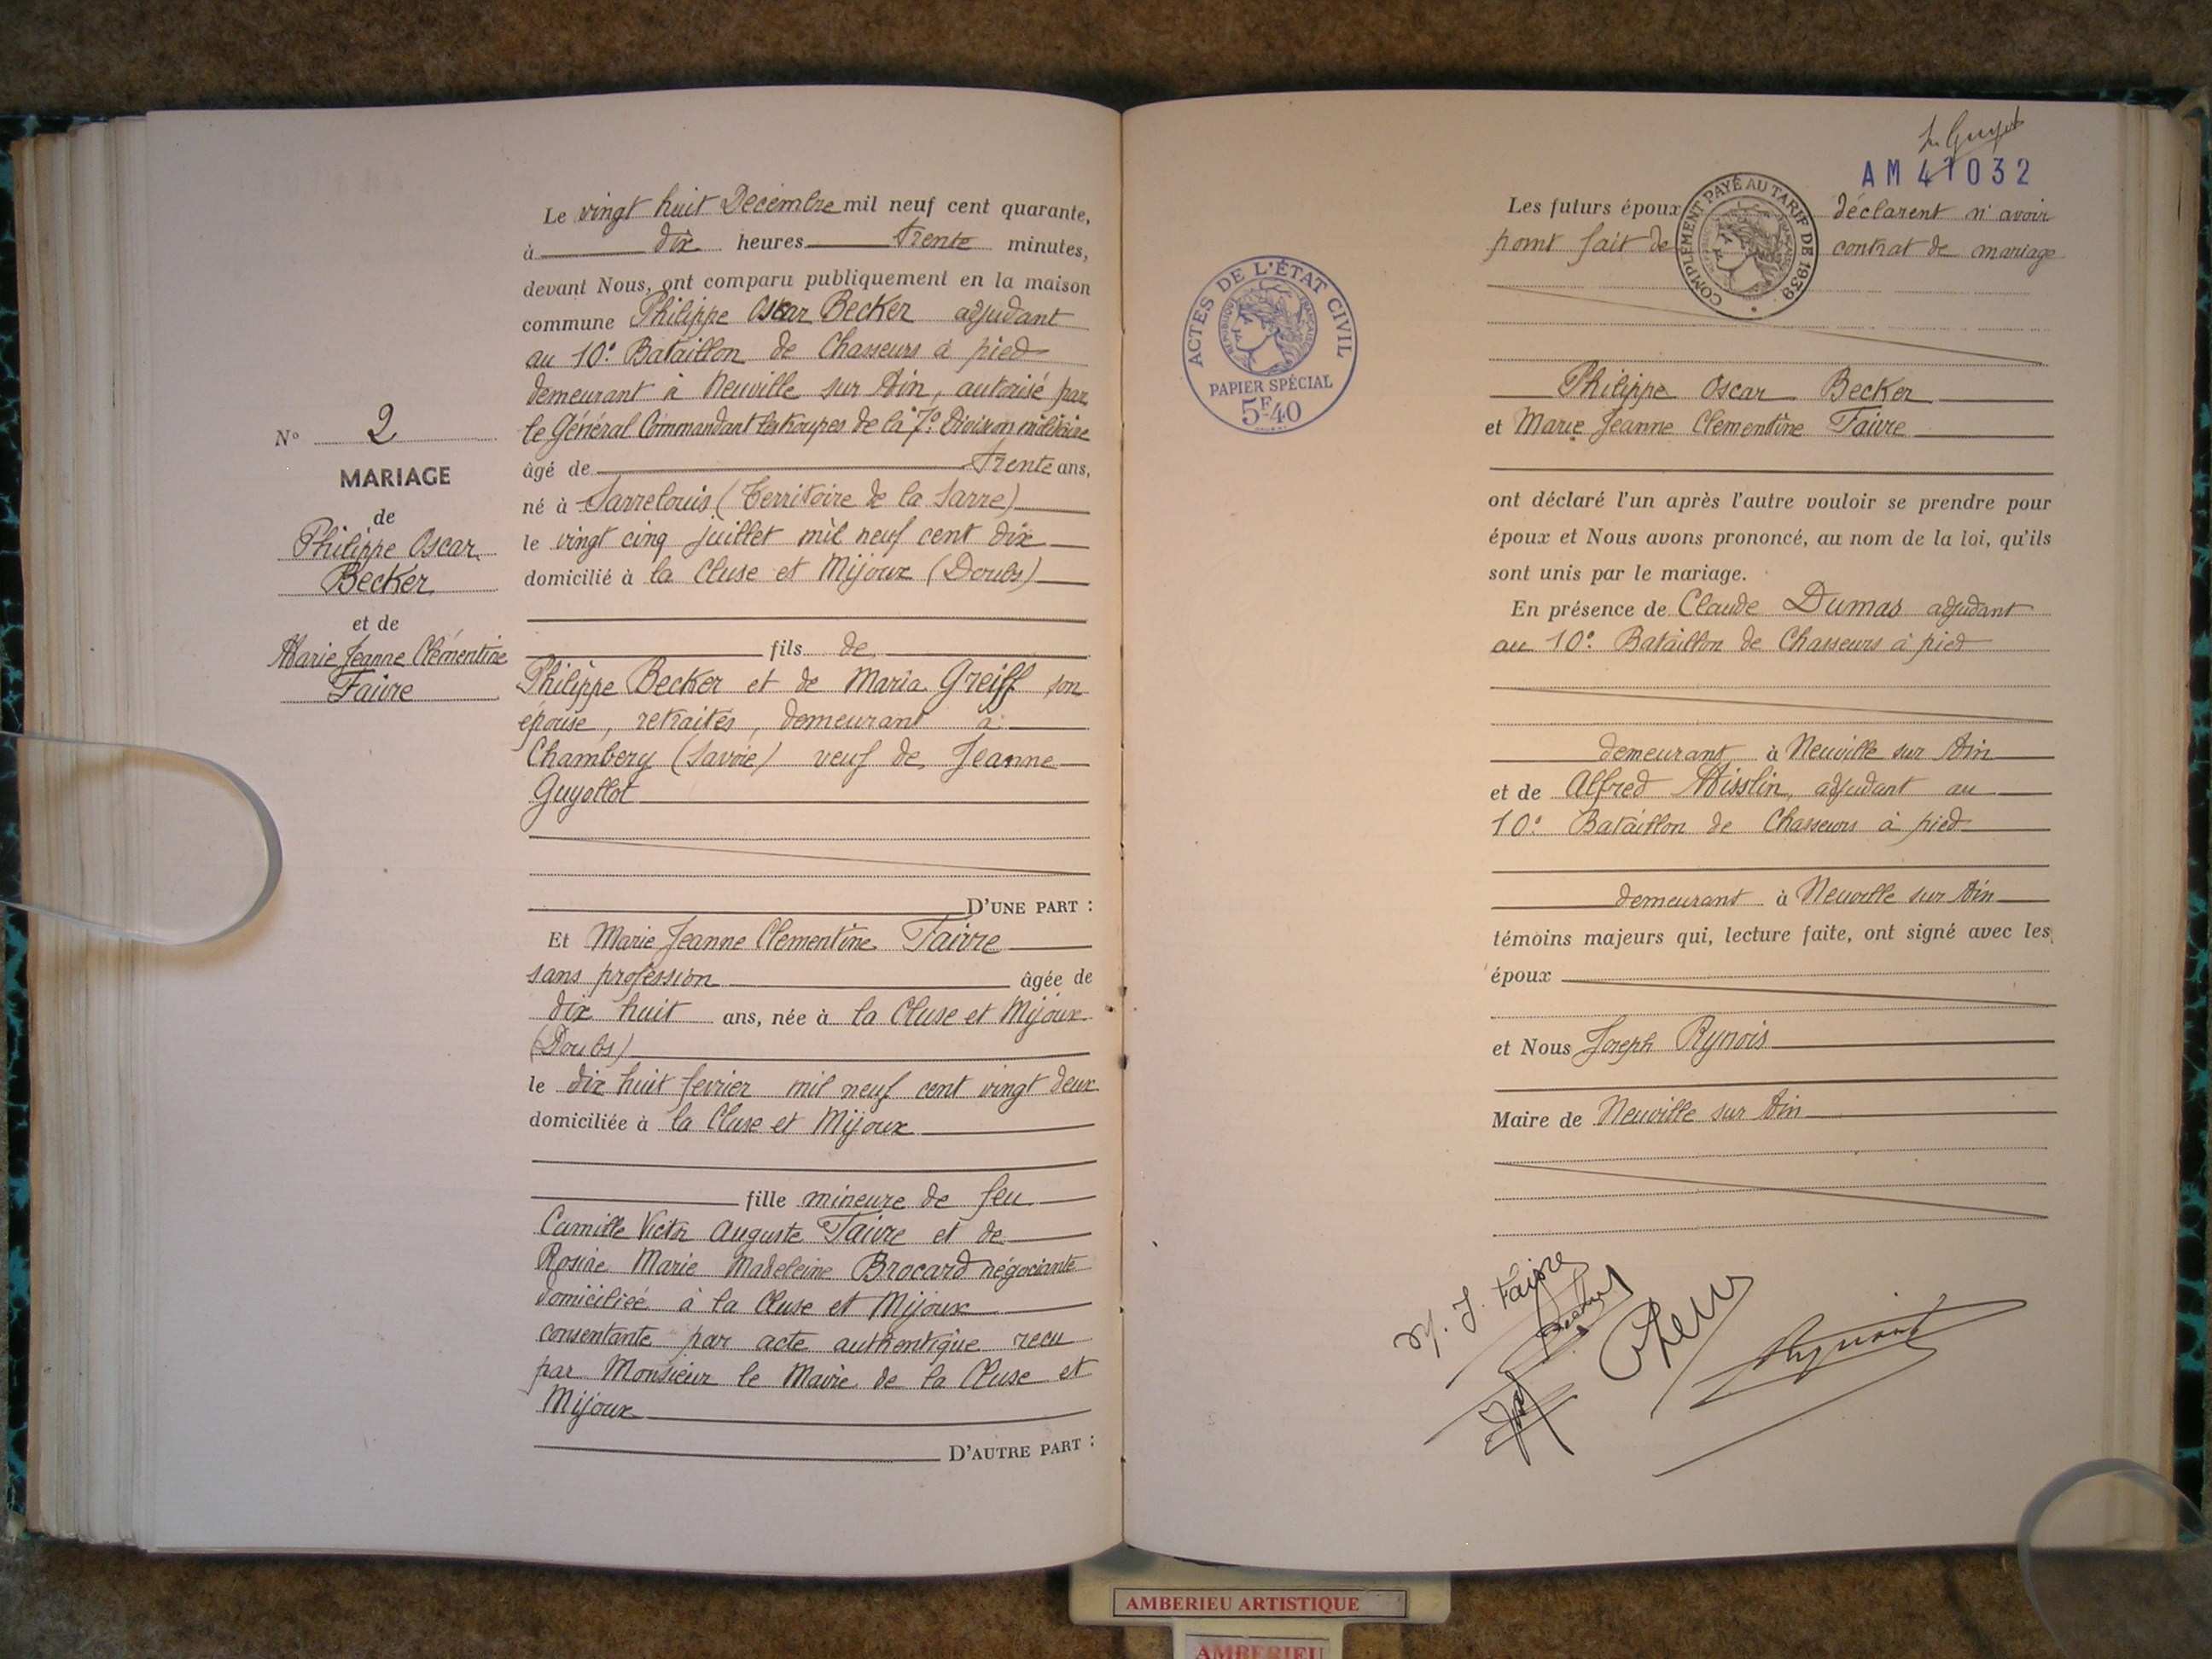 Le vingt huit Décembre mil neuf cent quarante,
à dix heures trente minutes,
devant Nous, ont comparu publiquement en la maison
commune Philippe Oscar Becker adjudant
au 10e Bataillon de Chasseurs à pied
demeurant à Neuville sur Ain, autorisé par
le Général Commandant les troupes de la 7e Division militaire
âgé de trente ans,
né à Sarrelouis (Territoire de la Sarre)
le vingt cinq juillet mil neuf cent dix
domicilié à la Cluse et Mijoux (Doubs)
fils de
Philippe Becker et de Maria Greiff son
épouse, retraités, demeurant à
Chambery (Savoie) veuf de Jeanne
Guyollot
D'UNE PART :
Et Marie Jeanne Clementine Faivre
sans profession âgée de
dix huit ans, née à la Cluse et Mijoux
(Doubs)
le dix huit fevrier mil neuf cent vingt deux
domiciliée à la Cluse et Mijoux
fille mineure de feu
Camille Victor Auguste Faivre et de
Rosine Marie Madeleine Brocard négociante
domiciliée à la Cluse et Mijoux
consentante par acte authentique recu
par Monsieur le Maire de la Cluse et
Mijoux
D'AUTRE PART :
N° 2
MARIAGE
de
Philippe Oscar
Becker
et de
Marie Jeanne Clémentine
Faivre
AM 41032
COMPLÉMENT PAYÉ AU TARIF DE 1939
ACTES DE L'ÉTAT CIVIL
RÉPUBLIQUE FRANÇAISE
PAPIER SPÉCIAL
5F40
Les futurs époux déclarent n'avoir
point fait de contrat de mariage
Philippe Oscar Becker
et Marie Jeanne Clementine Faivre
ont déclaré l'un après l'autre vouloir se prendre pour
époux et Nous avons prononcé, au nom de la loi, qu'ils
sont unis par le mariage.
En présence de Claude Dumas adjudant
au 10e Bataillon de Chasseurs à pied
demeurant à Neuville sur Ain
et de Alfred Misslin, adjudant au
10e Bataillon de Chasseurs à pied
demeurant à Neuville sur Ain
témoins majeurs qui, lecture faite, ont signé avec les
époux
et Nous Joseph Rynois
Maire de Neuville sur Ain
M. J. Faivre
Becker
Rynois
AMBERIEU ARTISTIQUE
AMBERIEU